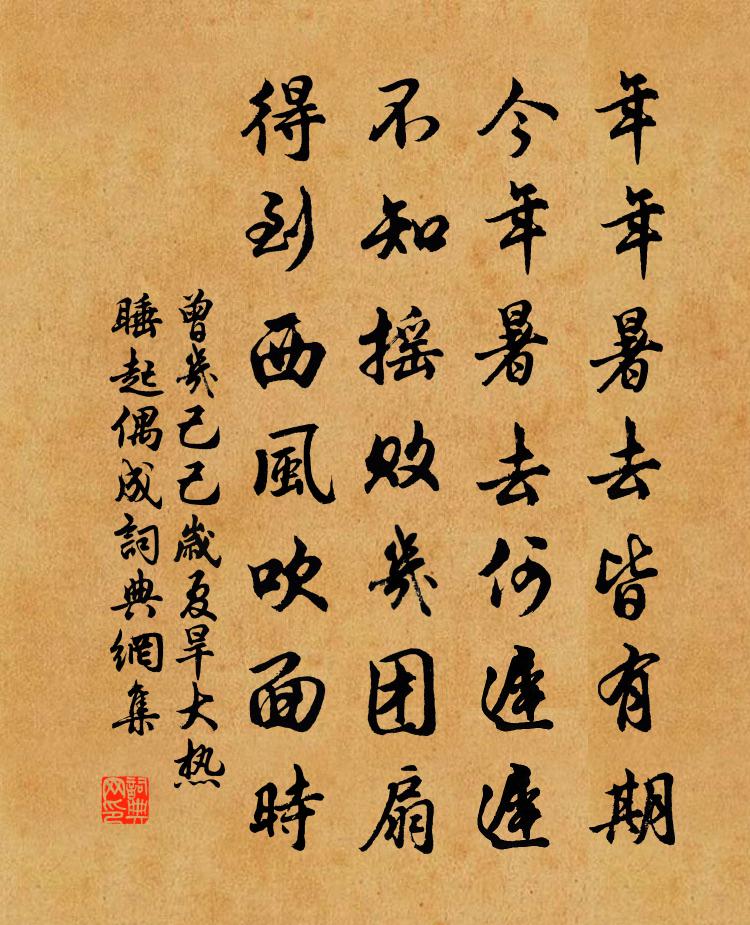 年年暑去皆有期
今年暑去何遲遲
不知摇敗幾团扇
得到西風吹面時
曾幾己已歲夏旱大热
睡起偶成詞典網集
詞典网印